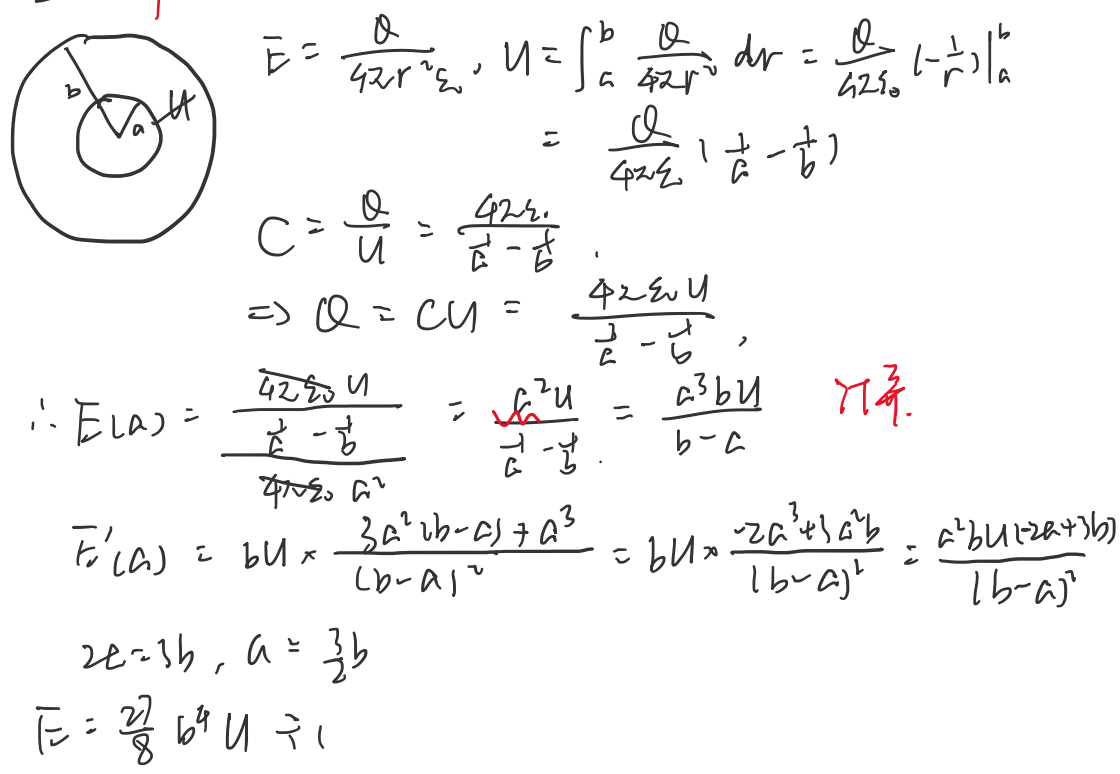 E = Q/(4πr²ε₀), U = ∫_a^b Q/(4πr²) dr = Q/(4πε₀) (-1/r)|_a^b
b a U
= Q/(4πε₀) (1/a - 1/b)
C = Q/U = 4πε₀/(1/a - 1/b).
⇒ Q = CU = 4πε₀U/(1/a - 1/b),
∴ E(a) = (4πε₀U/(1/a - 1/b))/(4πε₀a²) = a²U/(1/a - 1/b) = a³bU/(b-a)
E'(a) = bU × (3a²(b-a)+a³)/(b-a)² = bU × (-2a³+3a²b)/(b-a)² = a²bU(-2a+3b)/(b-a)²
2a=3b, a = 3/2 b
E = 27/8 b⁴ U ÷ (